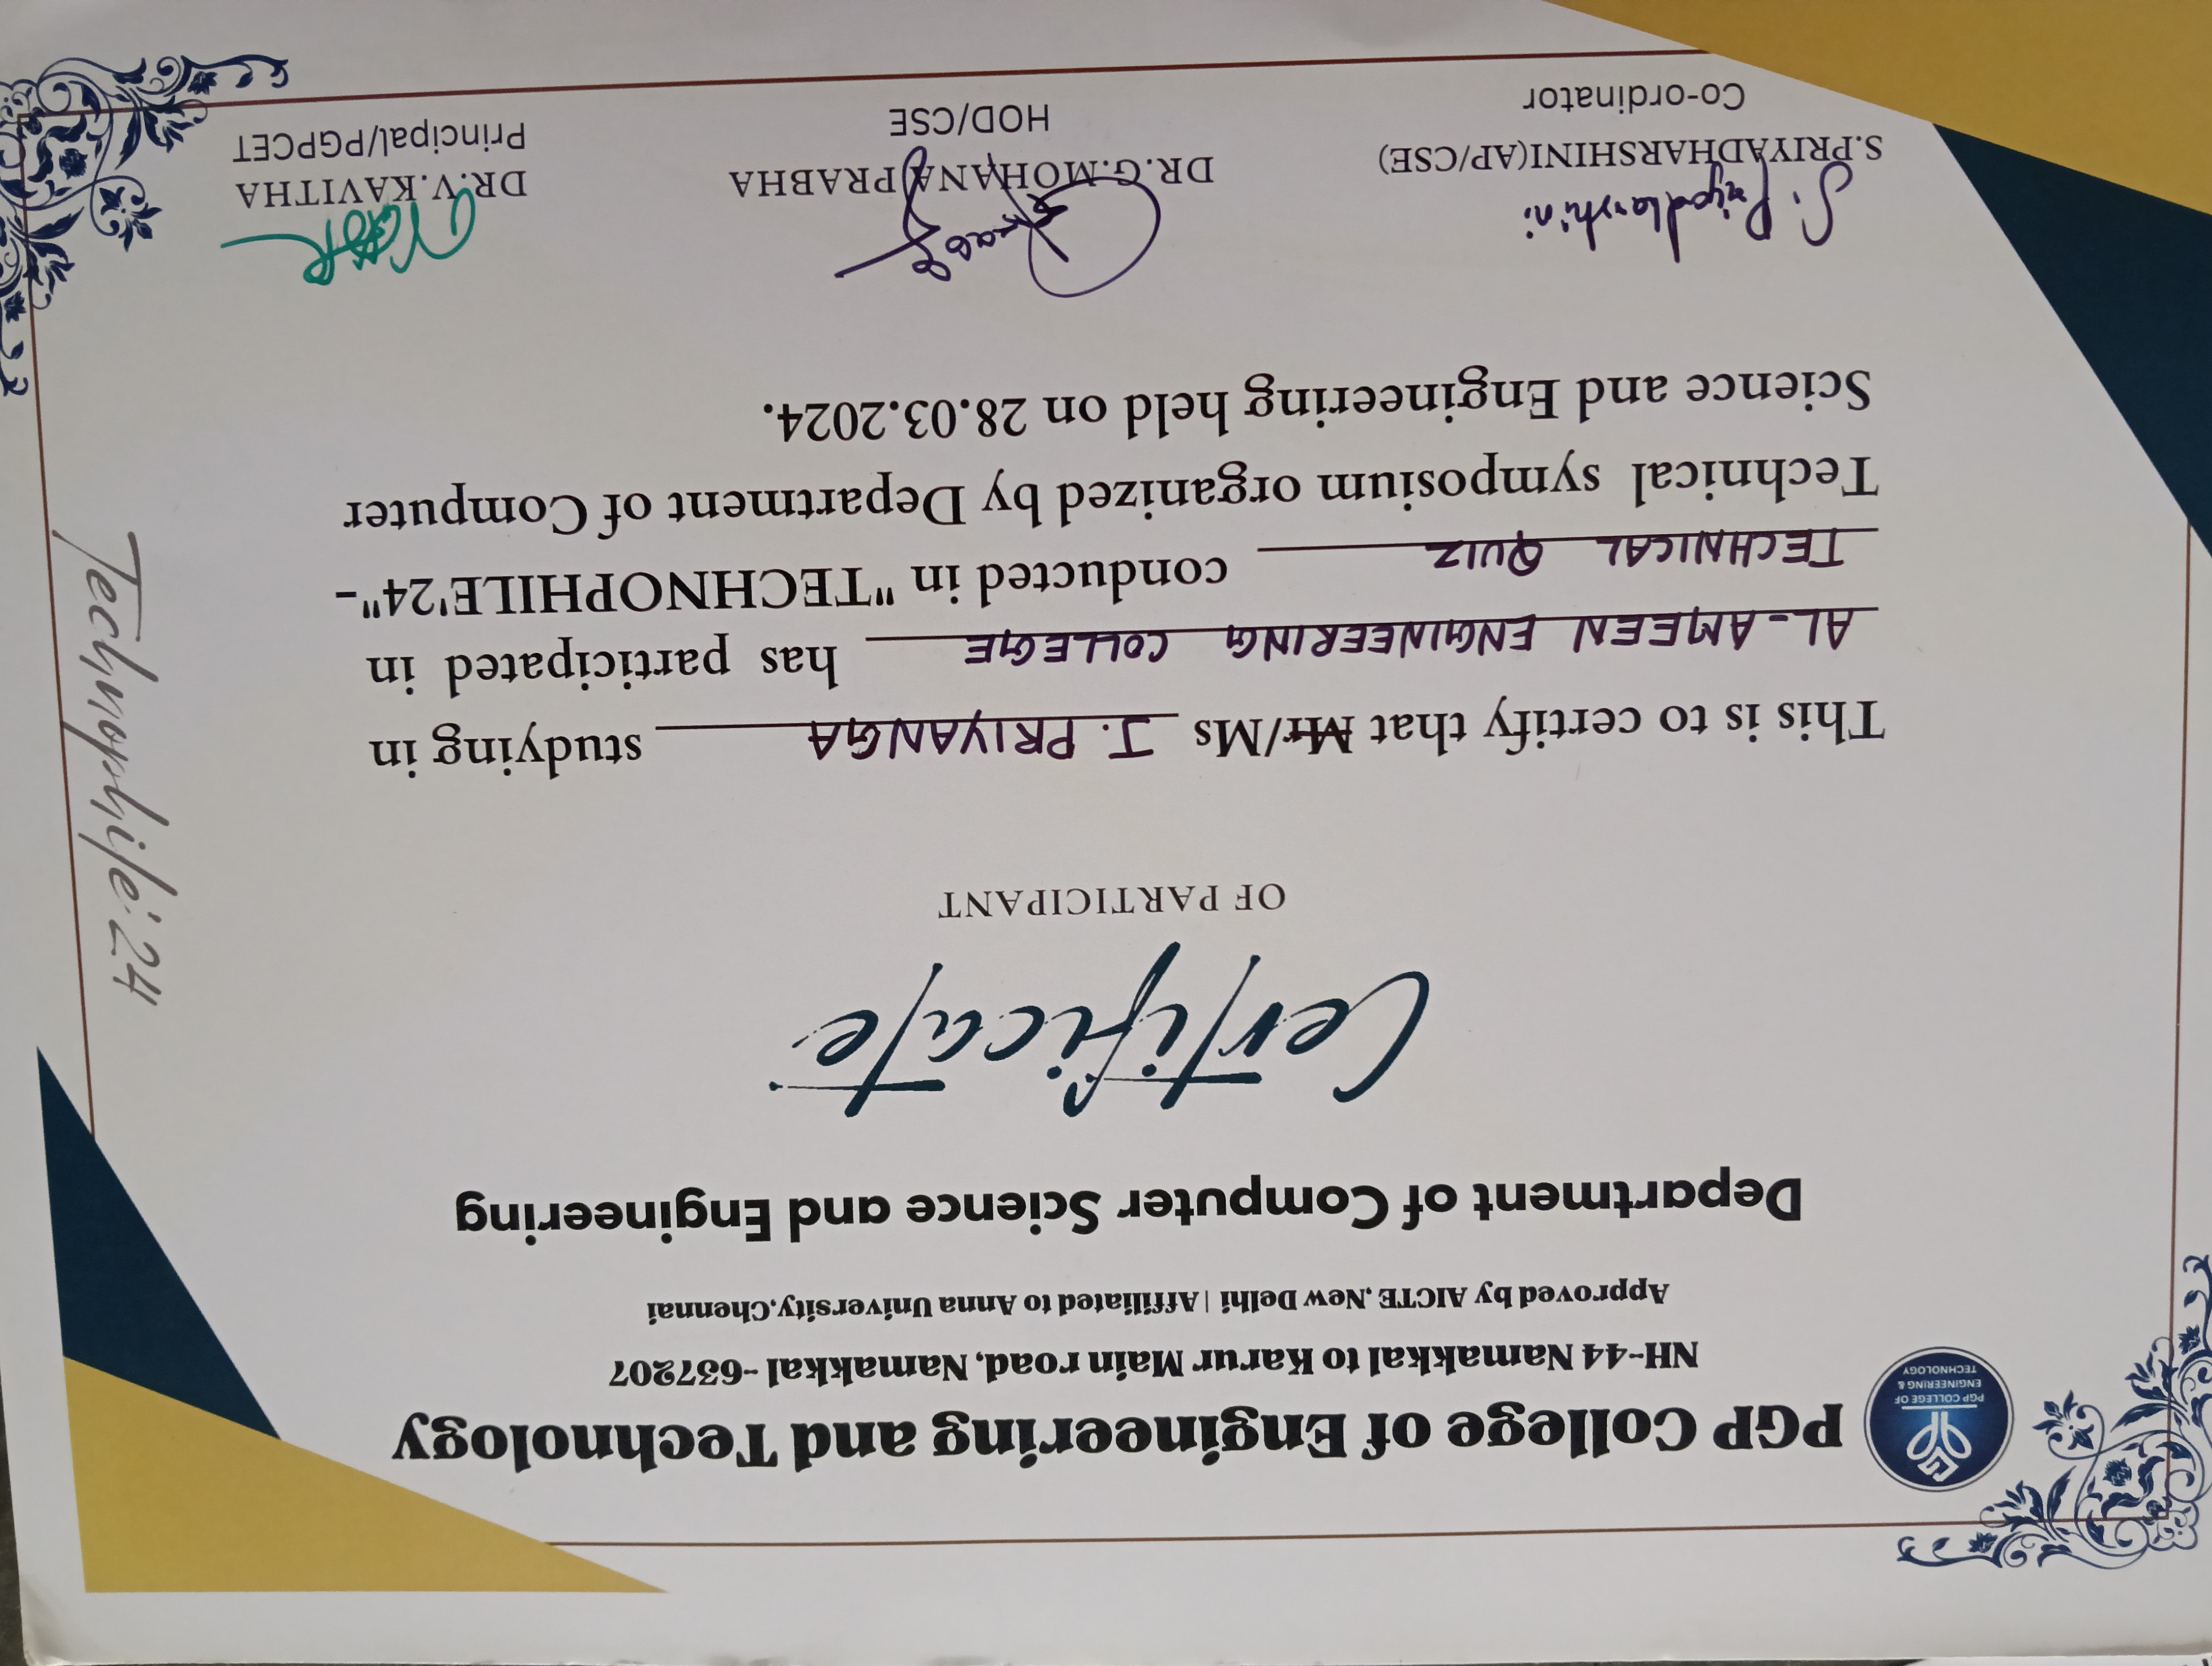 PGP COLLEGE OF
ENGINEERING &
TECHNOLOGY
PGP College of Engineering and Technology
NH-44 Namakkal to Karur Main road, Namakkal -637207
Approved by AICTE ,New Delhi | Affiliated to Anna University,Chennai
Department of Computer Science and Engineering
Certificate
OF PARTICIPANT
This is to certify that Mr/Ms J. PRIYANGA studying in
AL-AMEEN ENGINEERING COLLEGE has participated in
TECHNICAL QUIZ conducted in "TECHNOPHILE'24"-
Technical symposium organized by Department of Computer
Science and Engineering held on 28.03.2024.
Technophile'24
S. Priyadharshini
S.PRIYADHARSHINI(AP/CSE)
Co-ordinator
DR.G.MOHANA PRABHA
HOD/CSE
DR.V.KAVITHA
Principal/PGPCET